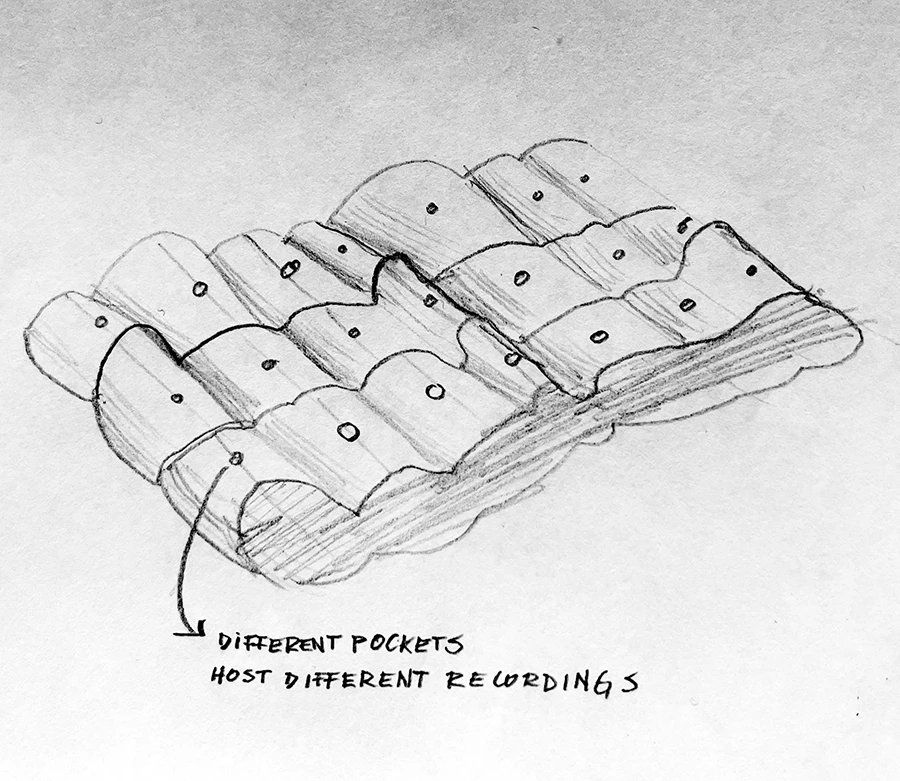 DIFFERENT POCKETS
HOST DIFFERENT RECORDINGS